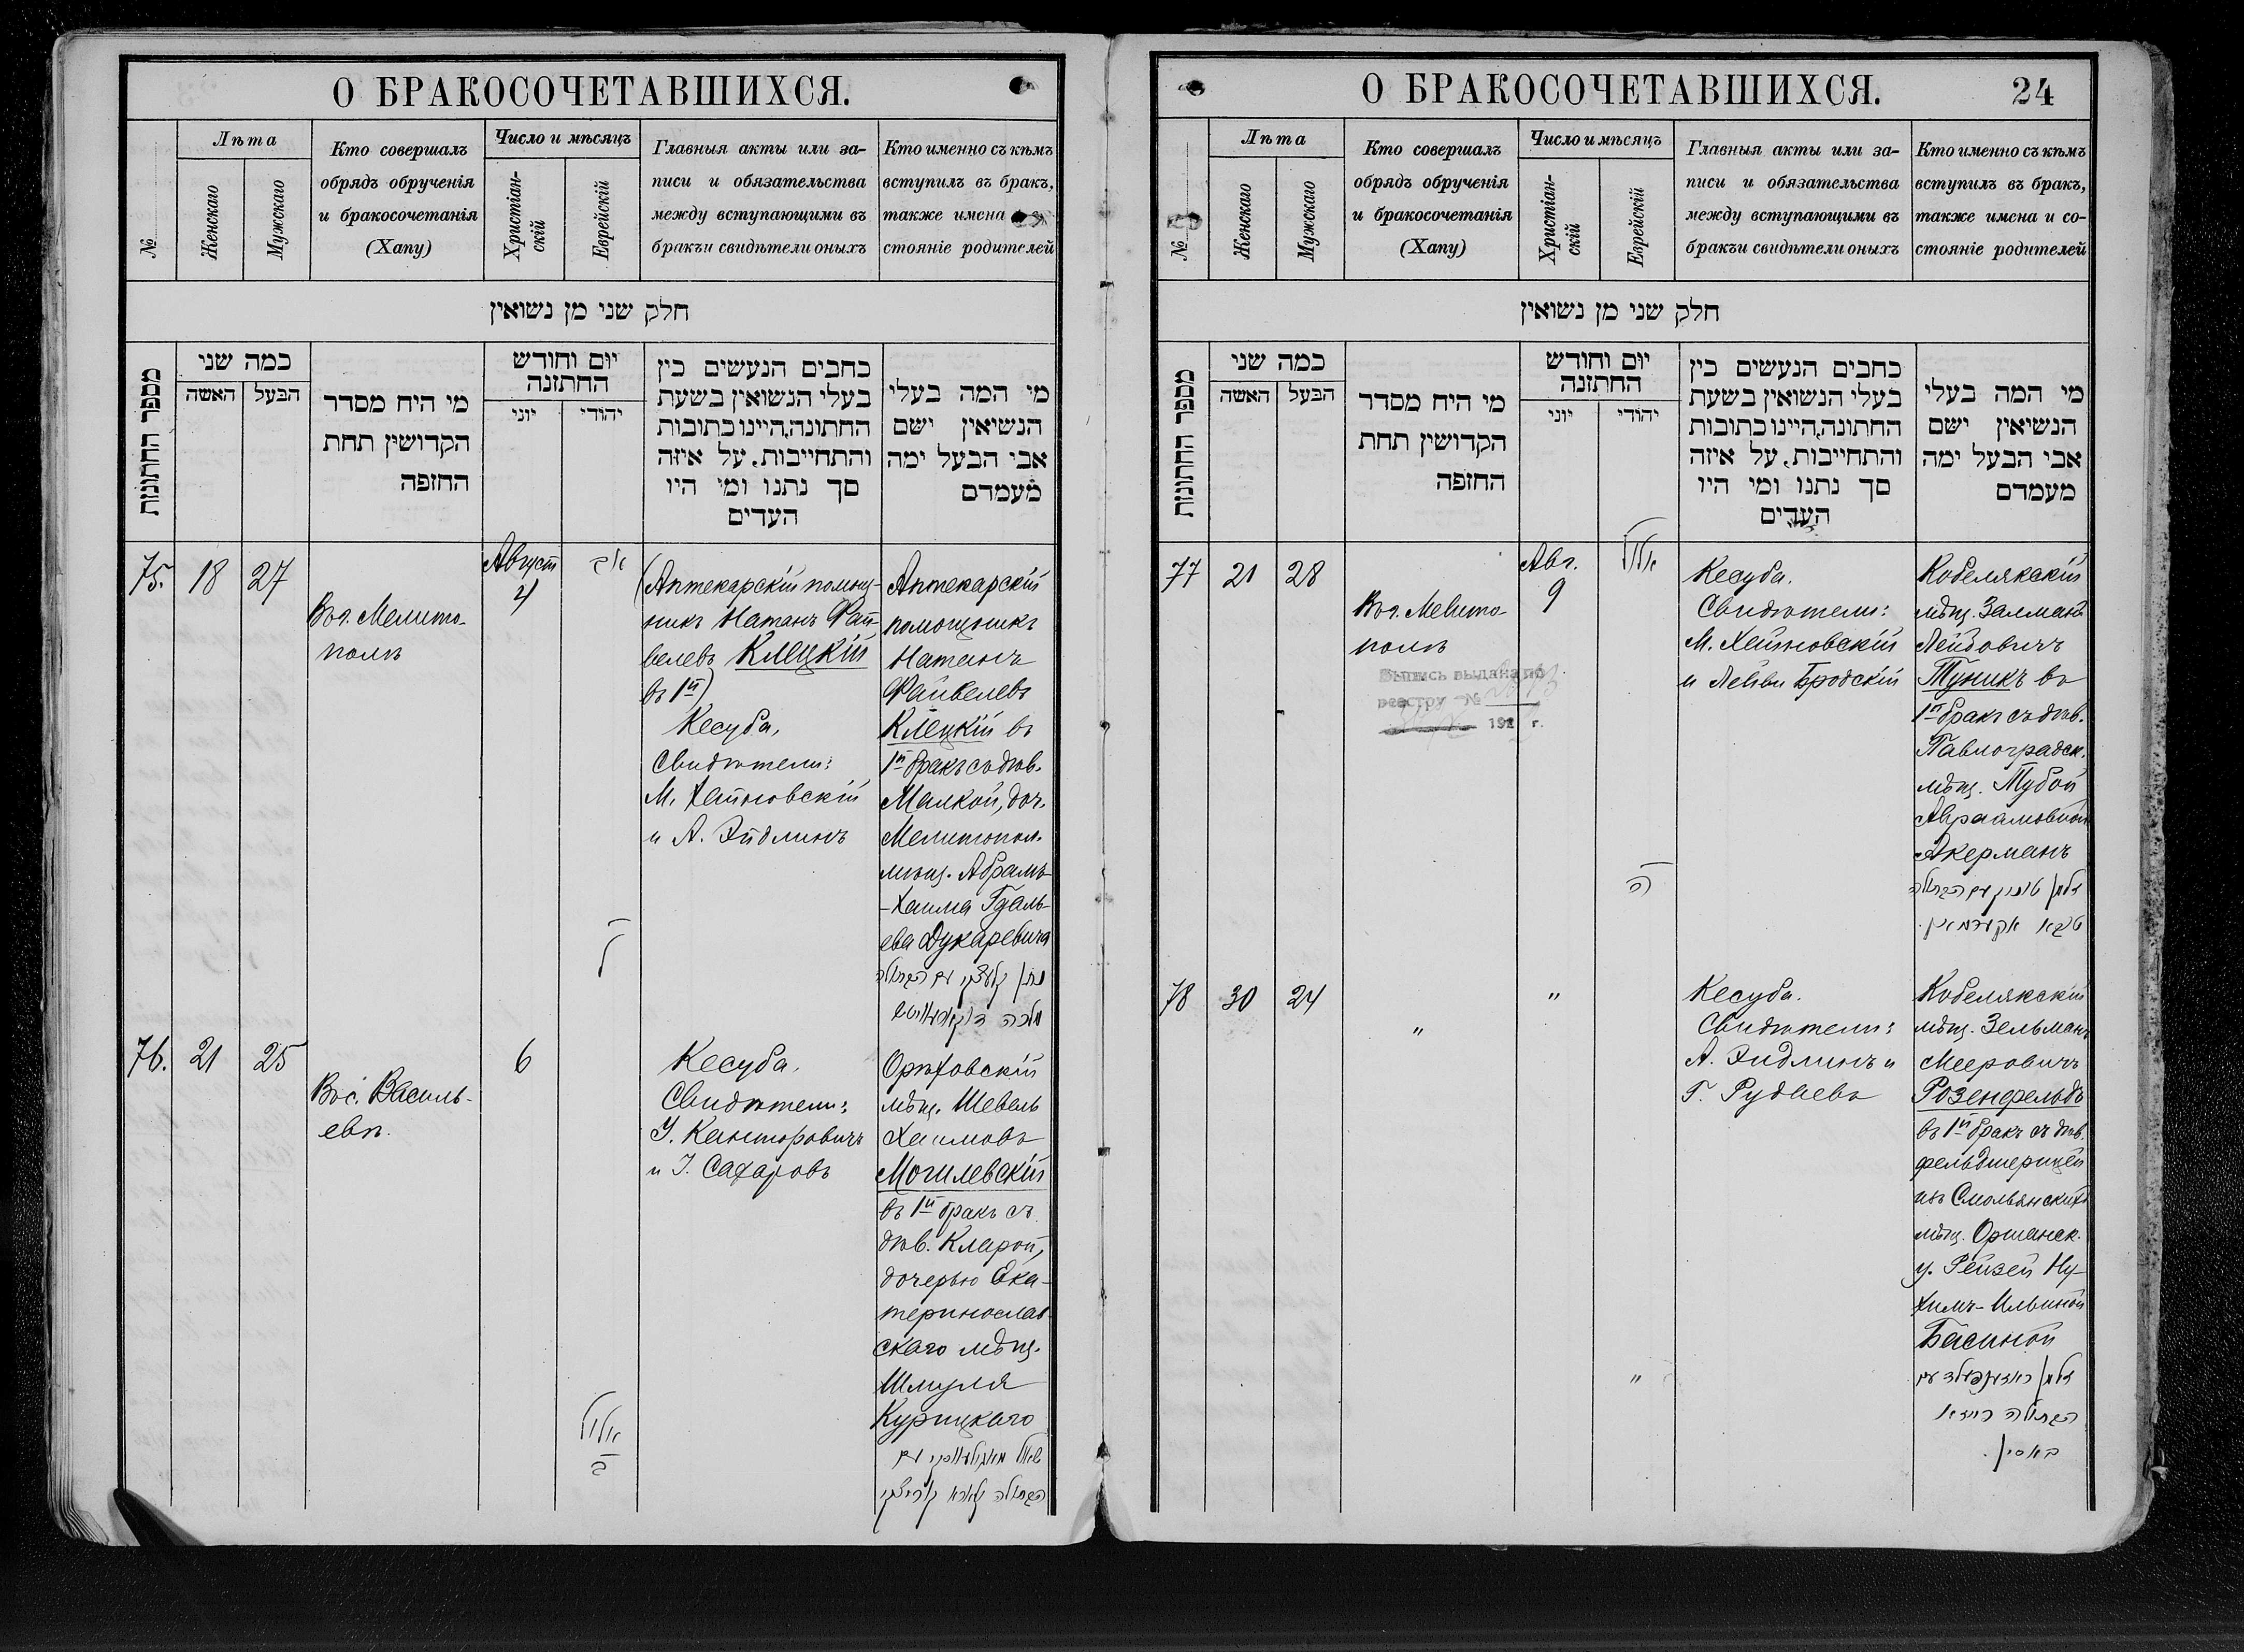 О БРАКОСОЧЕТАВШИХСЯ.
№
Лѣта
Женскаго
Мужскаго
Кто совершалъ
обрядъ обрученія
и бракосочетанія
(Хапу)
Число и мѣсяцъ
Христіан-
скій
Еврейскій
Главныя акты или за-
писи и обязательства
между вступающими въ
бракъи свидѣтели оныхъ
Кто именно съ кѣмъ
вступилъ въ бракъ,
также имена
стояніе родителей
חלק שני מן נשואין
מספר החתונות
כמה שני
האשה
הבעל
מי היח מסדר
הקדושין תחת
החופה
יום וחודש
החתונה
יוני
יהודי
כחבים הנעשים כין
בעלי הנשואין בשעת
החתונה,היינו כתובות
והתחייבות, על איזה
סך נתנו ומי היו
העדים
מי המה בעלי
הנשיאין ישם
אבי הבעל ימה
מעמדם
75.
18
27
Въ г. Мелито-
полѣ
Август
4
אב
ל
(Аптекарскій помощ-
никъ Натанъ Фай-
велевъ Клецкій
въ 1й)
Кесуба,
Свидѣтели:
М. Хайновскій
и А. Эйдлинъ
Аптекарскій
помощникъ
Натанъ
Файвелевъ
Клецкій въ
1й бракъ съ дѣв.
Малкой, доч.
Мелитопол.
мѣщ. Абрамъ-
-Хаима Гдаль-
ева Дукаревича
נתן קלעצקי עם הבתולה
מלכה
76.
21
25
Въ с. Василь-
евк.
6
אלול
ב
Кесуба,
Свидѣтели:
У. Канторовичъ
и І. Сахаровъ
Орѣховскій
мѣщ. Шевель
Хаимовъ
Могилевскій
въ 1й бракъ съ
дѣв. Кларой,
дочерью Ека-
теринослав-
скаго мѣщ.
Шмуля
Курицкаго
עם
הבתולה קלארא קוריצקי
О БРАКОСОЧЕТАВШИХСЯ.
24
№
Лѣта
Женскаго
Мужскаго
Кто совершалъ
обрядъ обрученія
и бракосочетанія
(Хапу)
Число и мѣсяцъ
Христіан-
скій
Еврейскій
Главныя акты или за-
писи и обязательства
между вступающими въ
бракъи свидѣтели оныхъ
Кто именно съ кѣмъ
вступилъ въ бракъ,
также имена и со-
стояніе родителей
חלק שני מן נשואין
מספר החתונות
כמה שני
האשה
הבעל
מי היח מסדר
הקדושין תחת
החופה
יום וחודש
החתונה
יוני
יהודי
כחבים הנעשים כין
בעלי הנשואין בשעת
החתונה,היינו כתובות
והתחייבות, על איזה
סך נתנו ומי היו
העדים
מי המה בעלי
הנשיאין ישם
אבי הבעל ימה
מעמדם
77
21
28
Въ г. Мелито-
полѣ
Выпись выдана по
реестру №
192 г.
Авг.
9
אלול
ה
Кесуба.
Свидѣтели:
М. Хайновскій
и Лейви Бродскій
Кобелякскій
мѣщ. Залманъ
Лейбовичъ
Туникъ въ
1й бракъ съ дѣв.
Павлоградск.
мѣщ. Тубой
Авраамовной
Акерманъ
זלמן טוניק עם הבתולה
טבא אקערמאן.
78
30
24
"
"
"
Кесуба.
Свидѣтели:
А. Эйдлинъ и
Г. Рудаевъ
Кобелякскій
мѣщ. Зельманъ
Мееровичъ
Розенфельдъ
въ 1й бракъ съ дѣв.
фельдшерицей
изъ Смольянскихъ
мѣщ. Оршанск.
у. Рейзей Ну-
химъ-Ильиной
Басиной
זלמן ראזענפעלד עם
הבתולה רייזא
באסין.